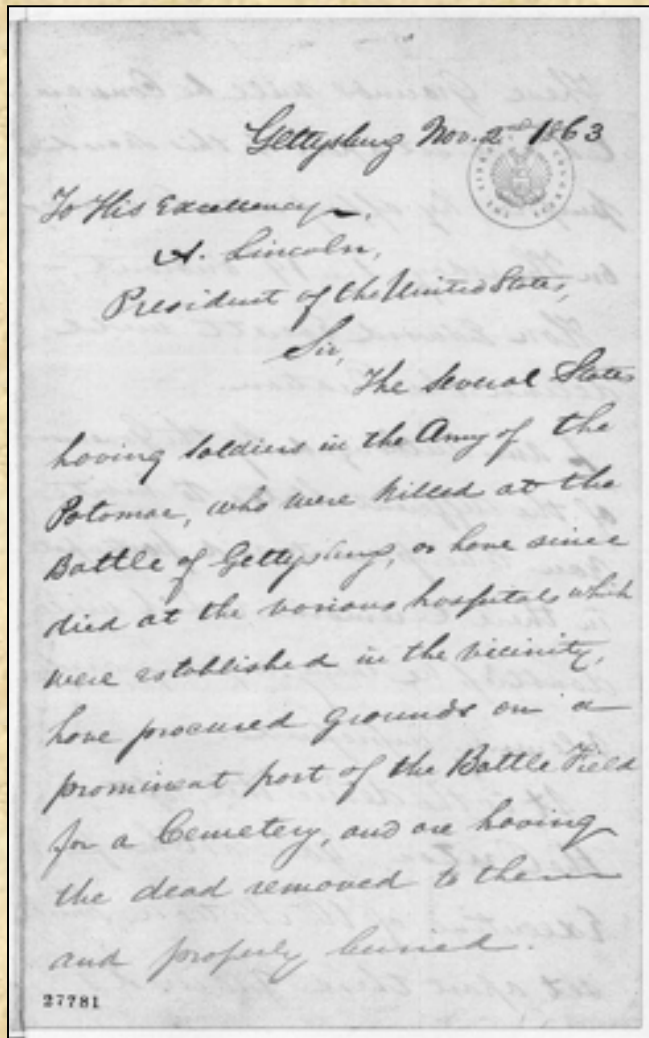 Gettysburg Nov. 2nd 1863
To His Excellency,
A. Lincoln,
President of the United States,
Sir,
The Several States
having soldiers in the Army of the
Potomac, who were killed at the
Battle of Gettysburg, or have since
died at the various hospitals which
were established in the vicinity,
have procured grounds on a
prominent part of the Battle Field
for a Cemetery, and are having
the dead removed to them
and properly buried.
27781